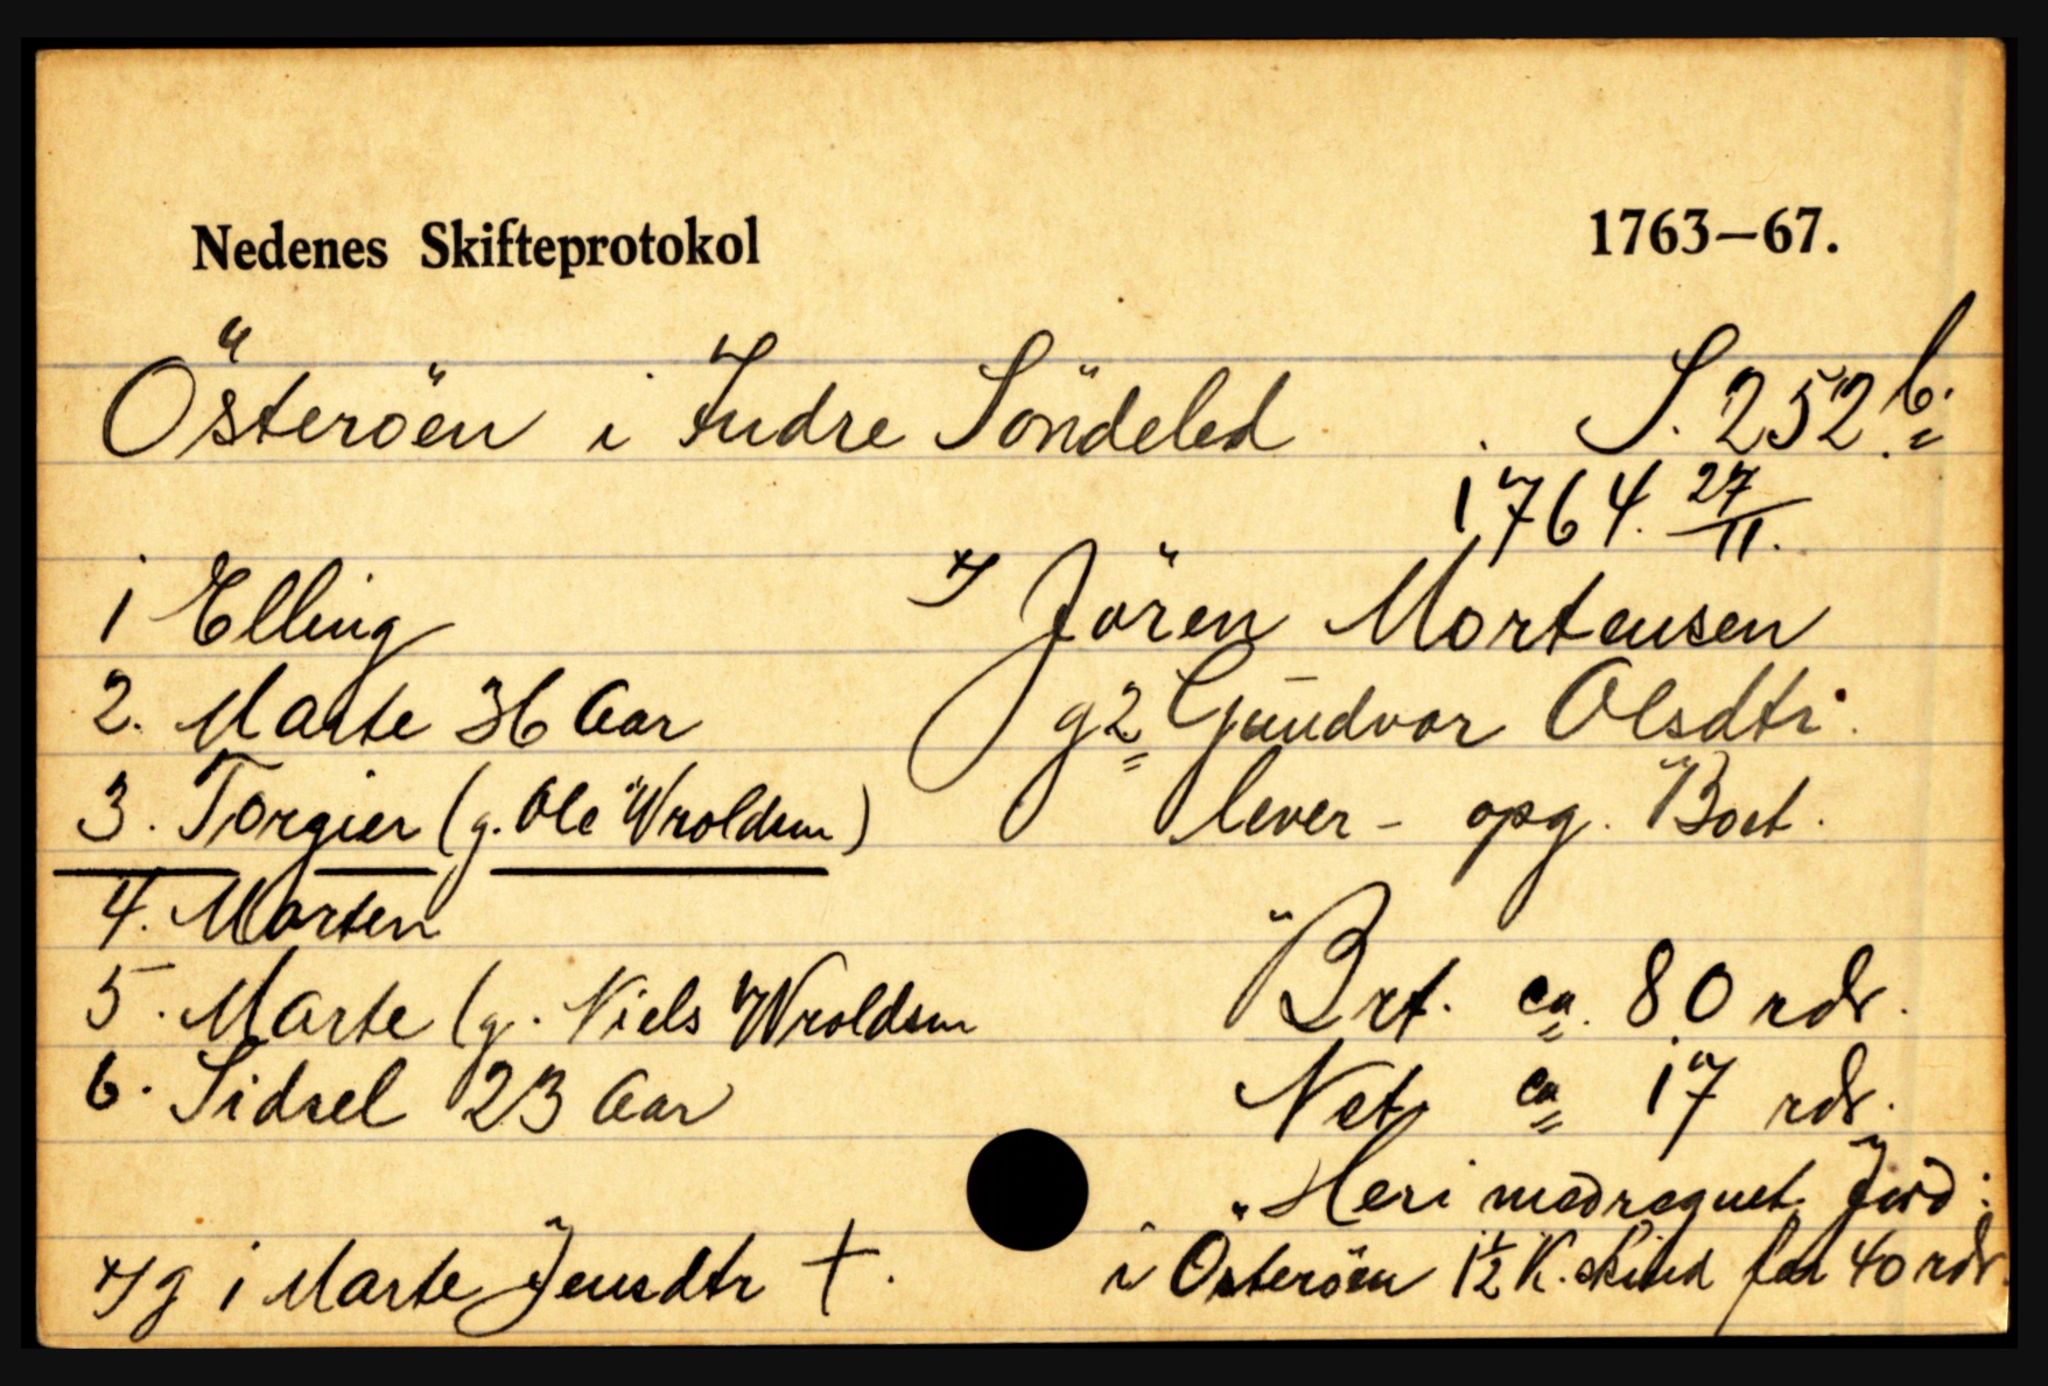 Nedenes Skifteprotokol 1763—67.
Österöen i Indre Söndeled S. 252 b.
1764. 27/11.
1 Elling Jören Mortensen
2. Marte 36 Aar g2 Gundvor Olsdtr.
3. Torgier (g. Ole Wroldsen) lever - opg. Boet.
4. Morten
5. Marte (g. Niels Wroldsen Brt. ca. 80 rdr.
6. Sidsel 23 Aar Net ca 17 rdr.
Heri medregnet Jord:
g 1 Marte Jensdtr †. i Österöen 1½ K. skind for 40 rdr.